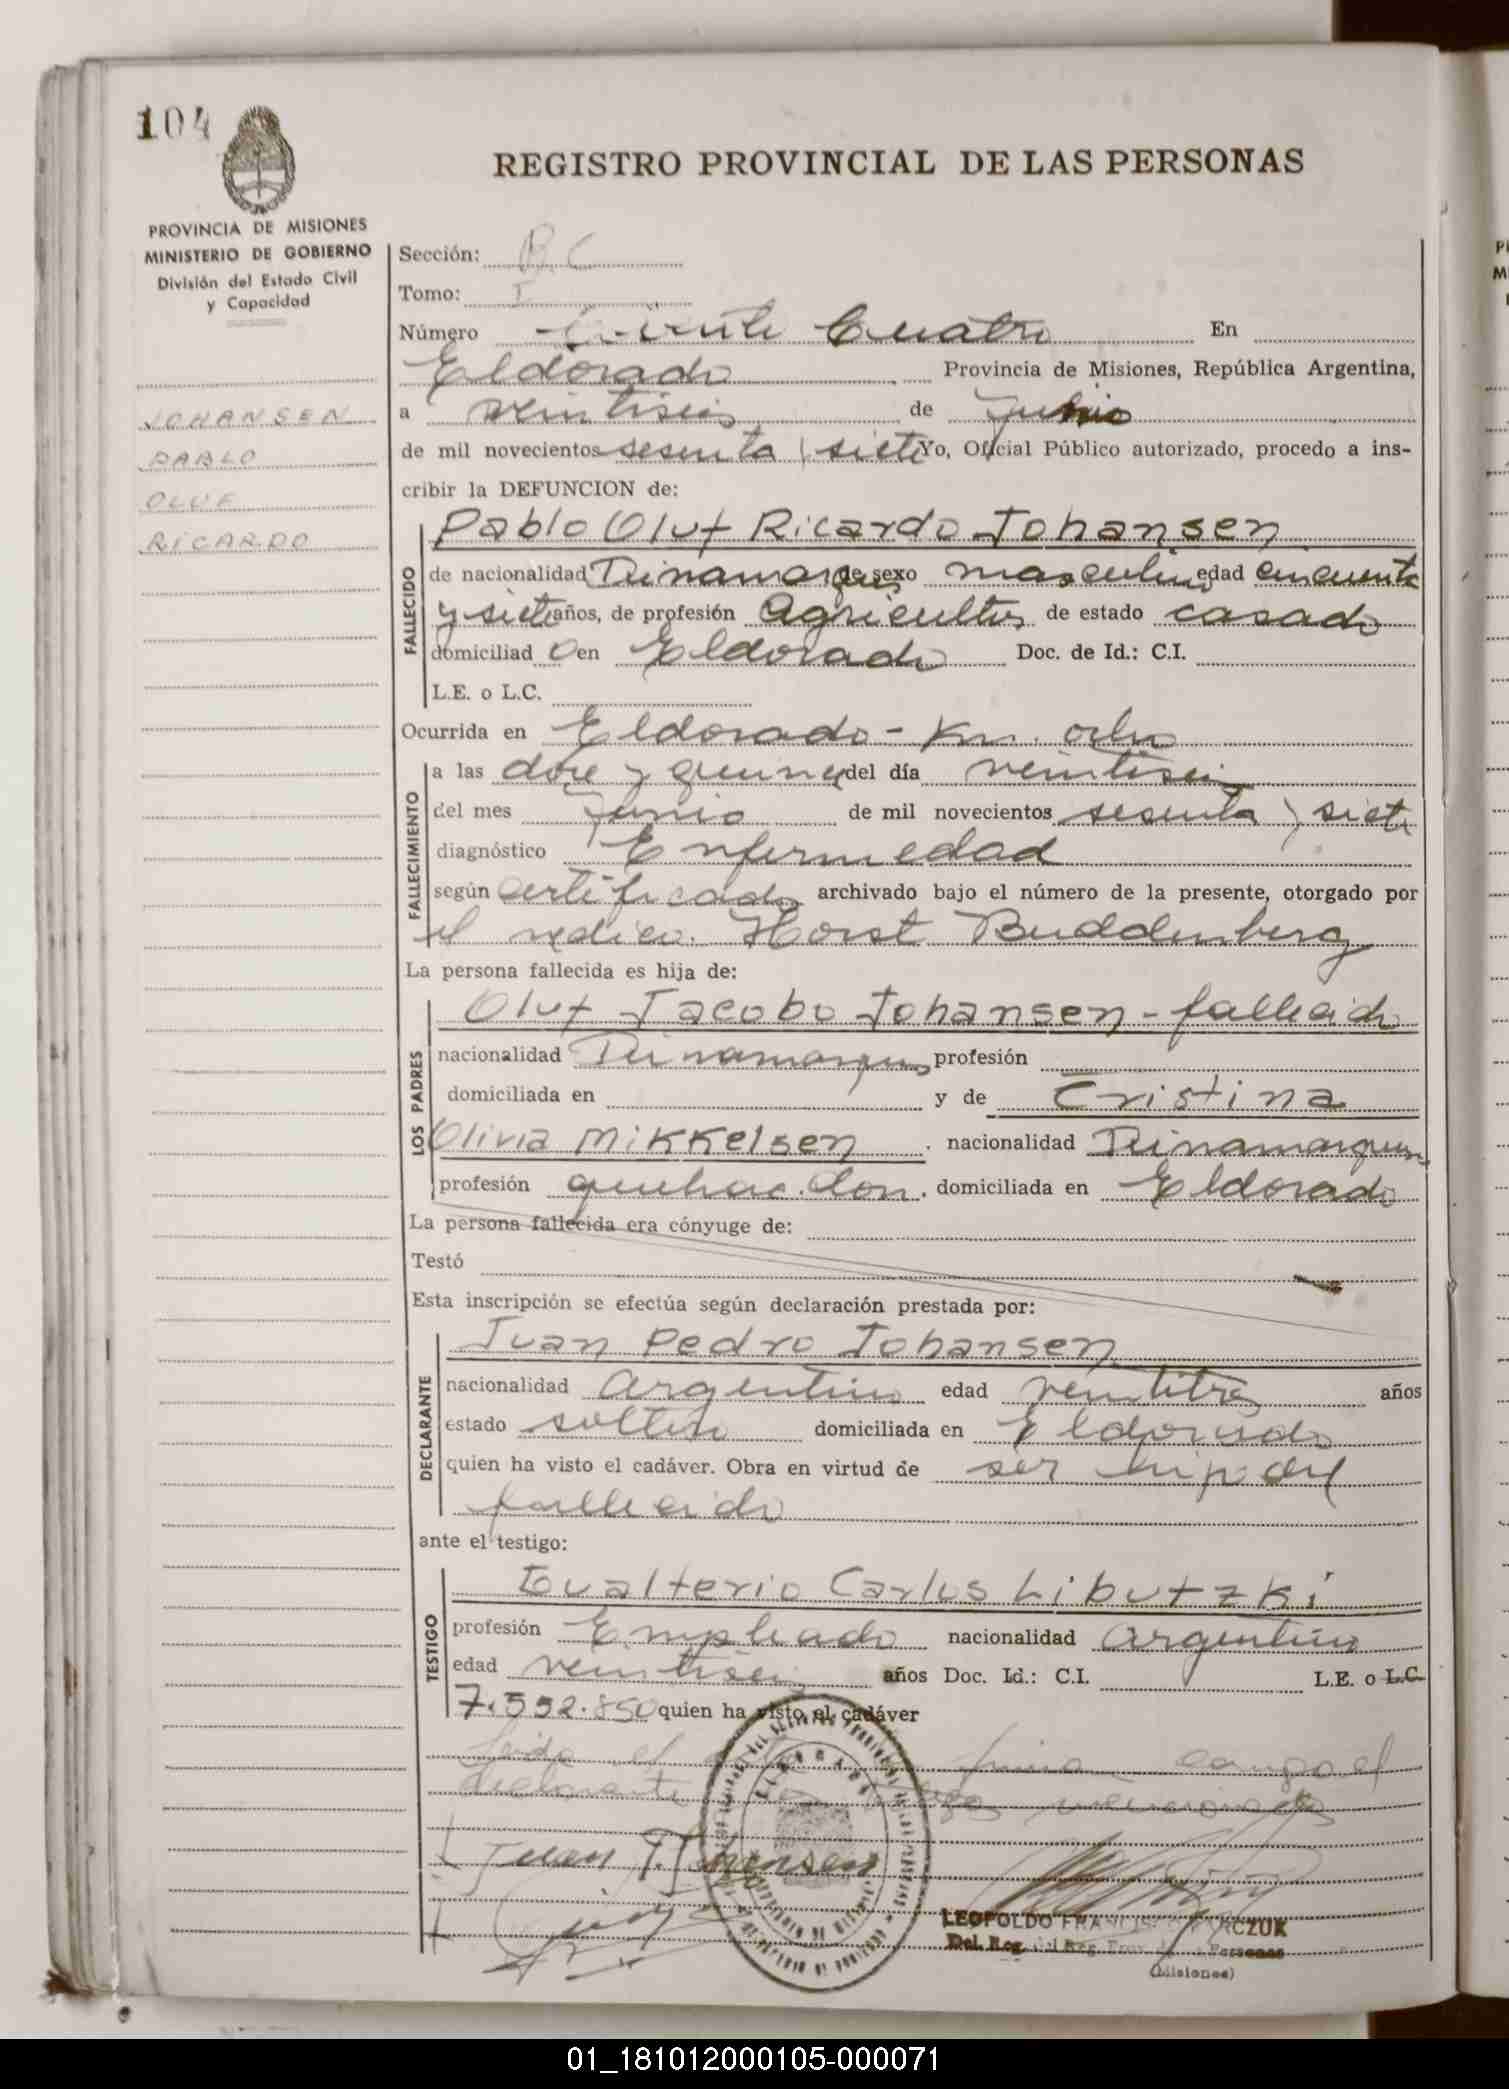 104
REGISTRO PROVINCIAL DE LAS PERSONAS
PROVINCIA DE MISIONES
MINISTERIO DE GOBIERNO
División del Estado Civil
y Capacidad
JOHANSEN
PABLO
OLUF
RICARDO
Sección: B.C
Tomo: I
Número Cuatro En
Eldorado Provincia de Misiones, República Argentina,
a veintiseis de Junio
de mil novecientos sesenta y siete Yo, Oficial Público autorizado, procedo a ins-
cribir la DEFUNCION de:
FALLECIDO
Pablo Oluf Ricardo Johansen
de nacionalidad Dinamarques de sexo masculino edad cincuenta
y siete años, de profesión Agricultor de estado casado
domiciliad o en Eldorado Doc. de Id.: C.I.
L.E. o L.C.
Ocurrida en Eldorado - Km. ocho
FALLECIMIENTO
a las doce y quince del día veintiseis
del mes Junio de mil novecientos sesenta y siete
diagnóstico Enfermedad
según Certificado archivado bajo el número de la presente, otorgado por
el medico. Horst Buddenberg
La persona fallecida es hija de:
LOS PADRES
Oluf Jacobo Johansen - fallecido
nacionalidad Dinamarques profesión
domiciliada en y de Cristina
Olivia Mikkelsen . nacionalidad Dinamarquesa
profesión quehac. dom. domiciliada en Eldorado
La persona fallecida era cónyuge de:
Testó
Esta inscripción se efectúa según declaración prestada por:
DECLARANTE
Juan Pedro Johansen
nacionalidad Argentino edad veintitres años
estado soltero domiciliada en Eldorado
quien ha visto el cadáver. Obra en virtud de ser hijo del
fallecido
ante el testigo:
TESTIGO
Gualterio Carlos Libutzki
profesión Empleado nacionalidad Argentino
edad veintiseis años Doc. Id.: C.I. L.E. o L.C.
7.552.850 quien ha visto el cadáver
Leida el acta firman conmigo el
declarante y testigo mencionados
Juan P. Johansen
ELDORADO
LEOPOLDO FRANCISCO
Del. Reg. del Reg. Prov. de las Personas
(Misiones)
01_181012000105-000071